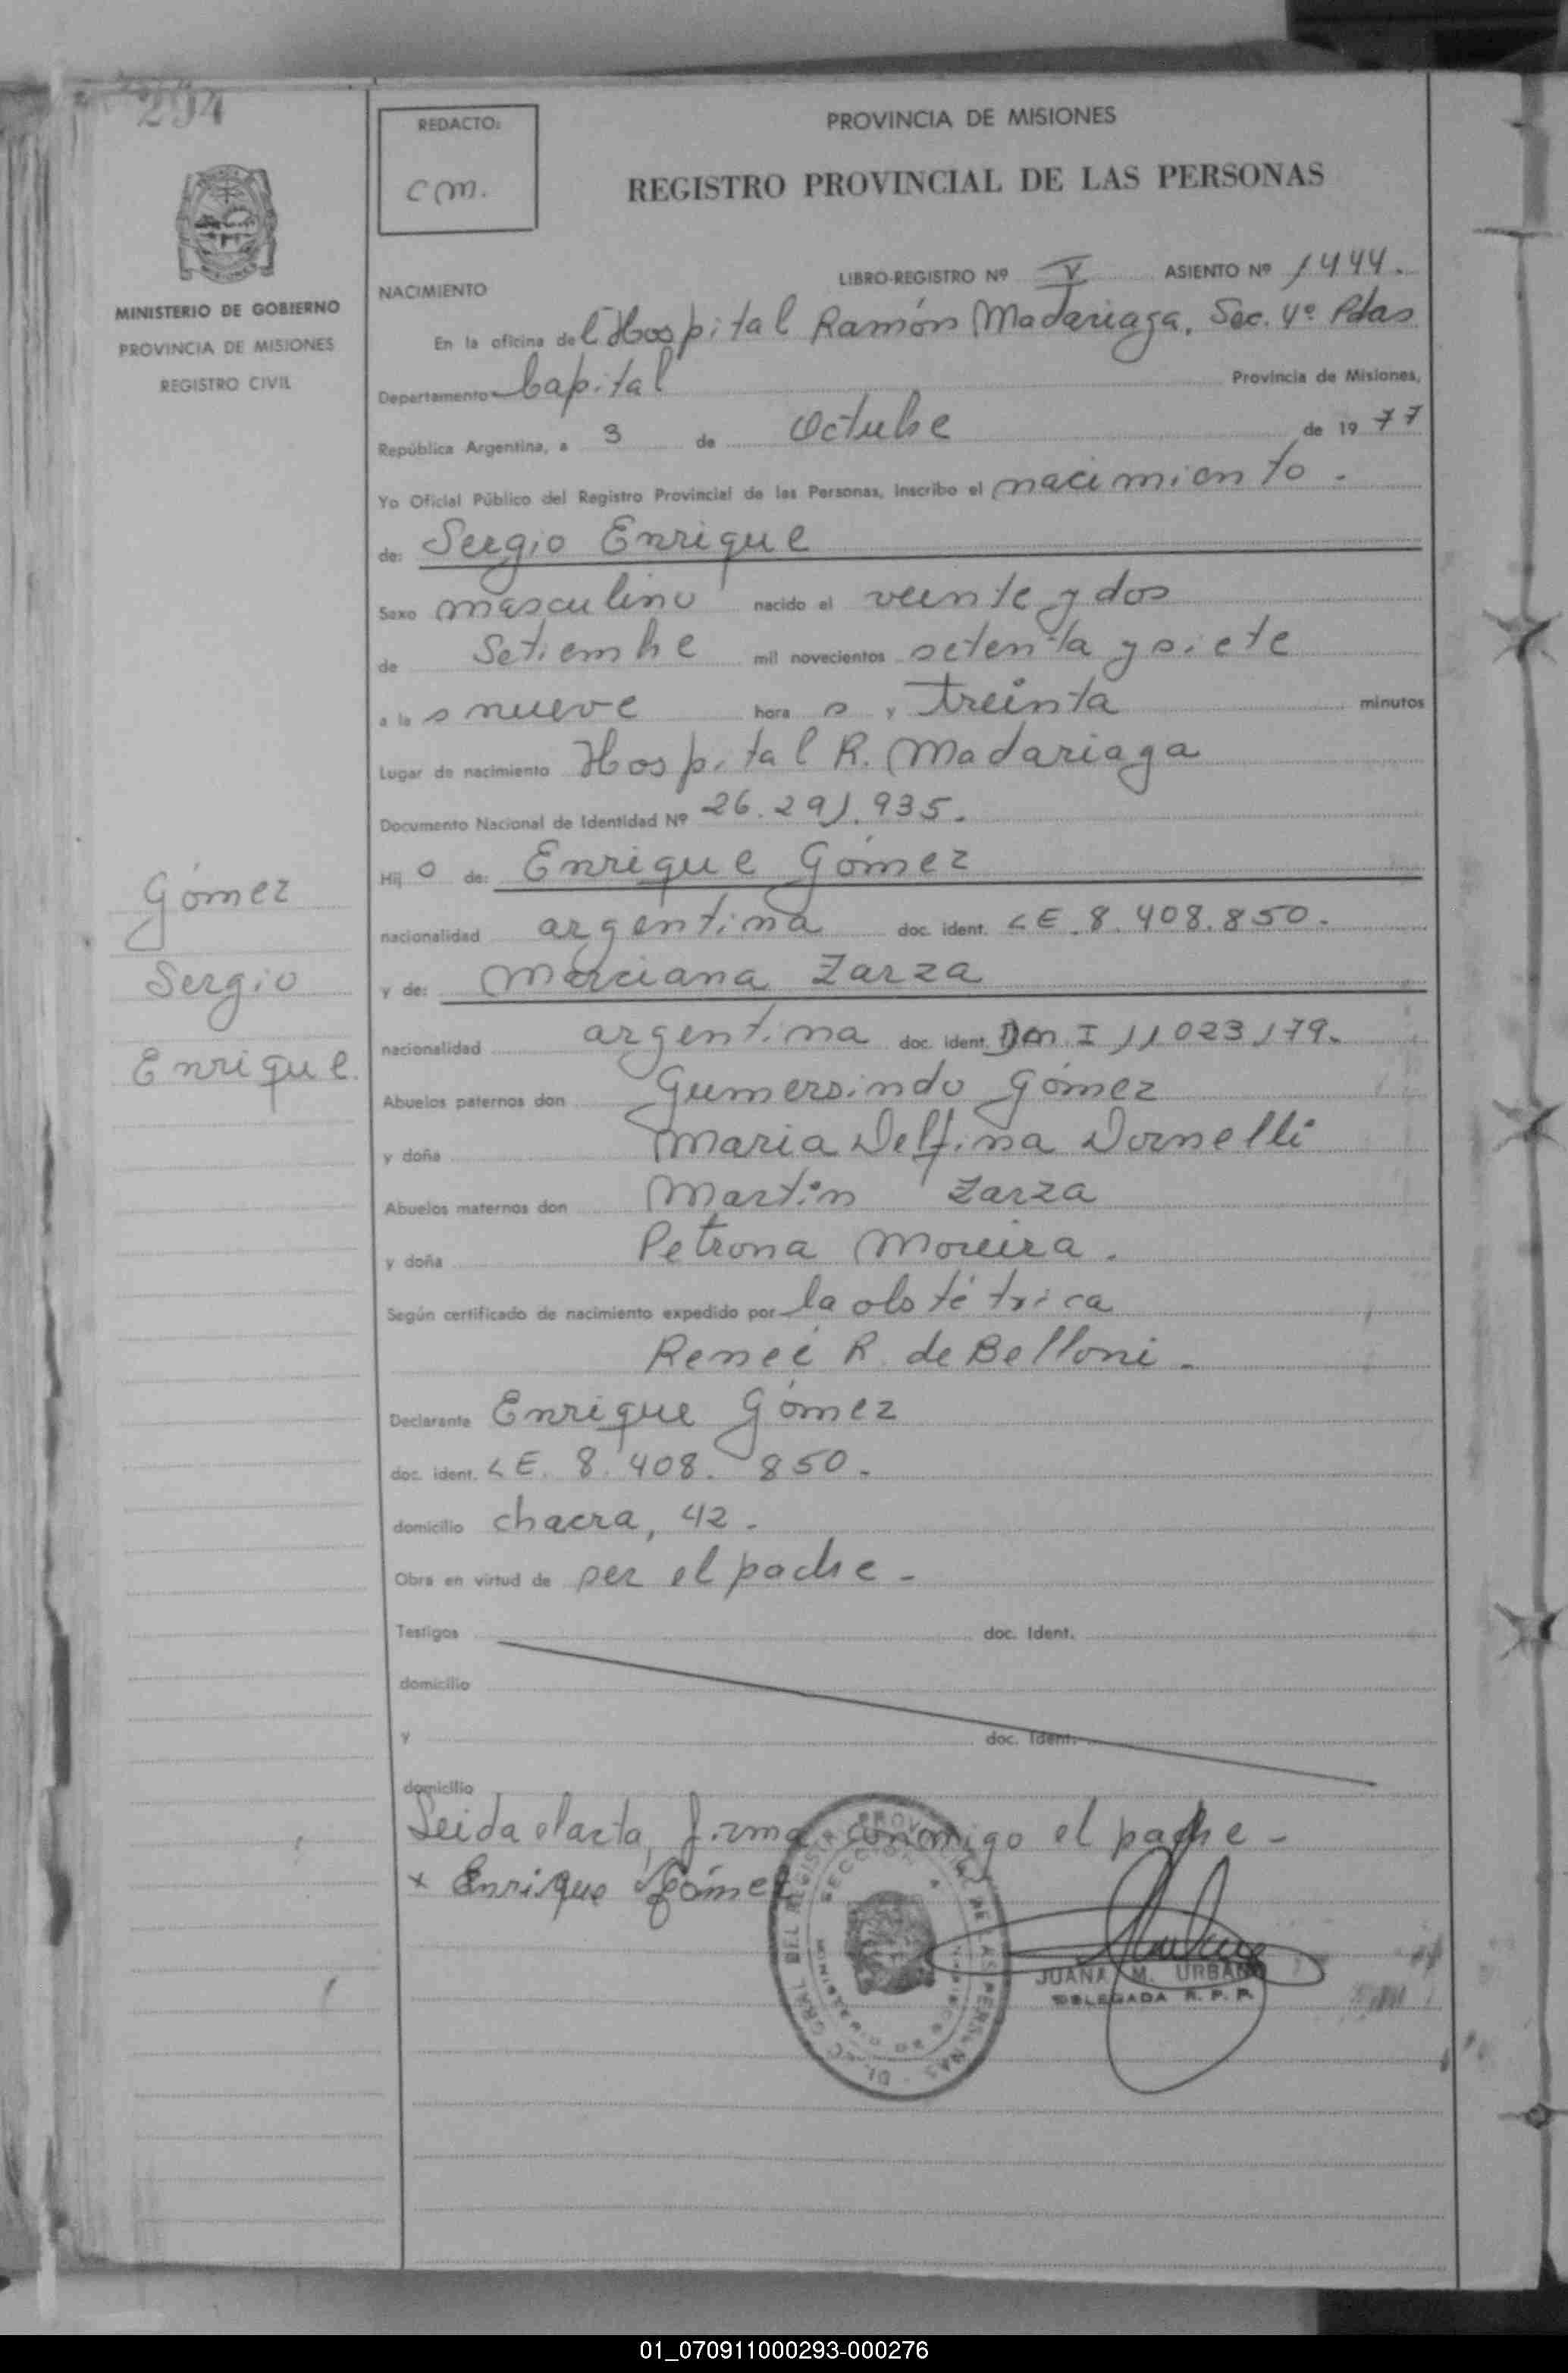 294
REDACTO:
C.M.
PROVINCIA DE MISIONES
REGISTRO PROVINCIAL DE LAS PERSONAS
MINISTERIO DE GOBIERNO
PROVINCIA DE MISIONES
REGISTRO CIVIL
NACIMIENTO LIBRO-REGISTRO Nº V ASIENTO Nº 1444.
En la oficina del Hospital Ramón Madariaga, Sec. 4º Pdas
Departamento Capital Provincia de Misiones,
República Argentina, a 3 de Octubre de 1977
Yo Oficial Público del Registro Provincial de las Personas, inscribo el nacimiento.
de: Sergio Enrique
Sexo masculino nacido el veinte y dos
de Setiembre mil novecientos setenta y siete
a las nueve horas y treinta minutos
Lugar de nacimiento Hospital R. Madariaga
Documento Nacional de Identidad Nº 26.291.935.
Hijo de: Enrique Gómez
nacionalidad argentina doc. ident. LE. 8.408.850.
y de: Marciana Zarza
nacionalidad argentina doc. ident. DNI 11023179.
Abuelos paternos don Gumersindo Gómez
y doña Maria Delfina Dornelli
Abuelos maternos don Martin Zarza
y doña Petrona Moreira.
Según certificado de nacimiento expedido por la obstétrica
Reneé R. de Belloni.
Declarante Enrique Gómez
doc. ident. LE. 8.408.850.
domicilio chacra, 42.
Obra en virtud de ser el padre.
Testigos doc. Ident.
domicilio
y doc. Ident.
domicilio
Leida el acta, firma conmigo el padre.
x Enrique Gómez
JUANA M. URBANO
DELEGADA R. P. P.
DIREC. GRAL DEL REGISTRO PROVINCIAL DE LAS PERSONAS
SECCION 4
MISIONES
Gómez
Sergio
Enrique.
01_070911000293-000276